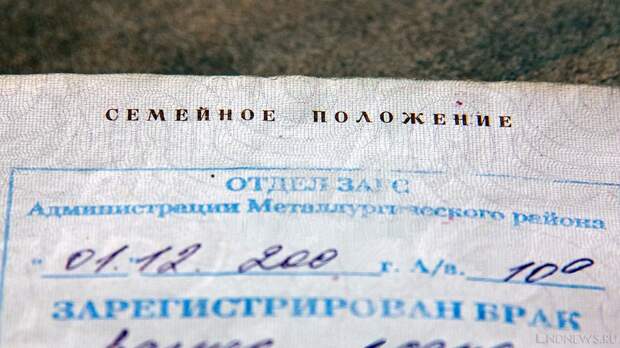 СЕМЕЙНОЕ ПОЛОЖЕНИЕ
ОТДЕЛ ЗАГС
Администрации Металлургического района
"01.12. 200 г. А/в. 100
ЗАРЕГИСТРИРОВАН БРАК
URNDNEWS.RU